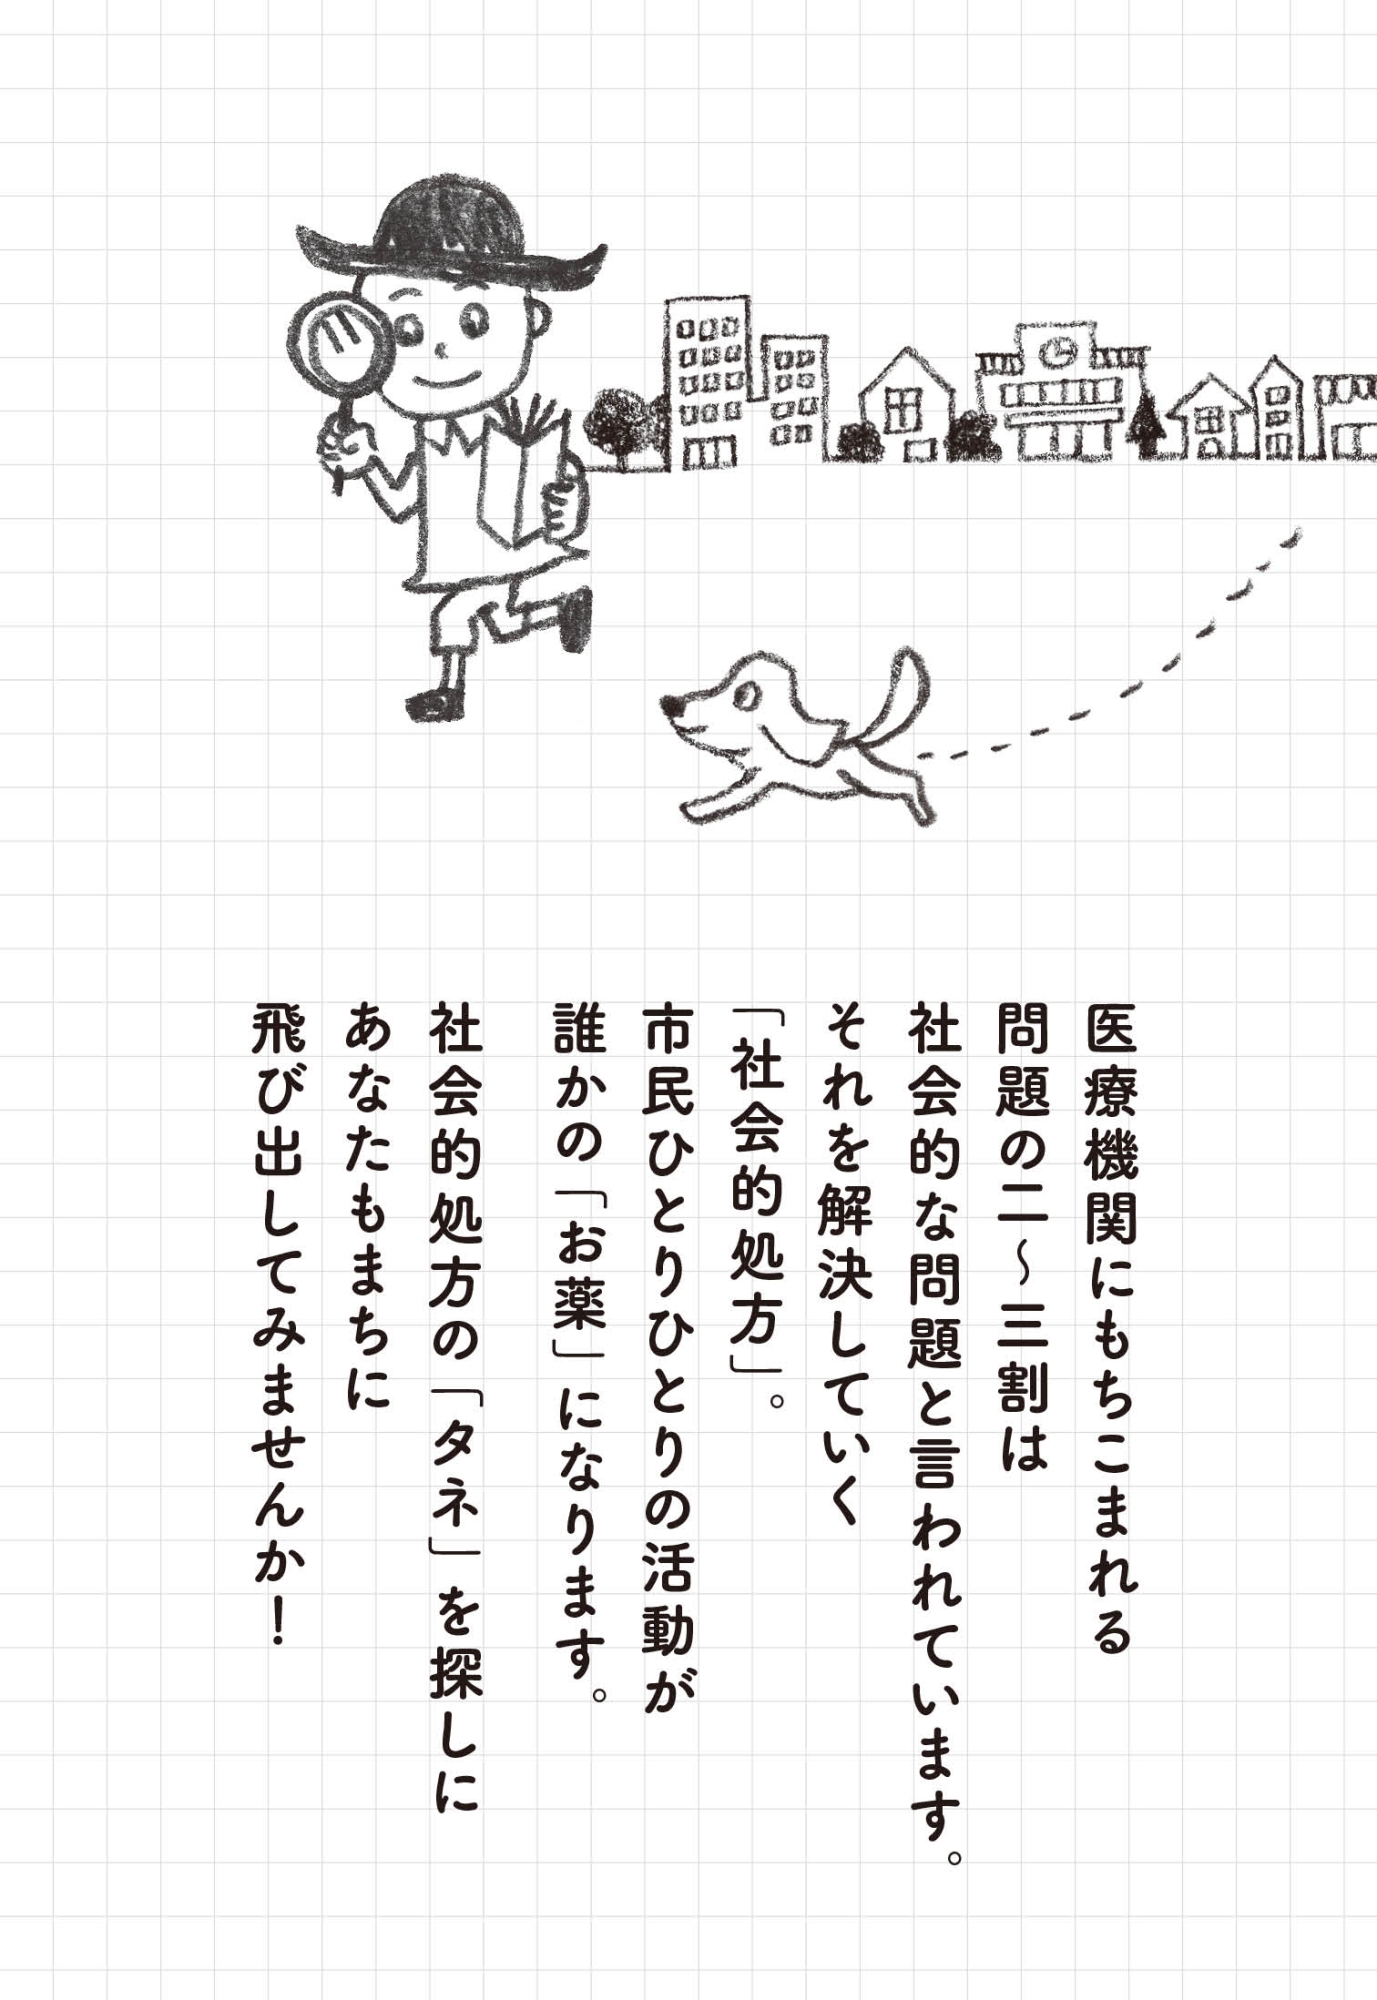 医療機関にもちこまれる
問題の二〜三割は
社会的な問題と言われています。
それを解決していく
「社会的処方」。
市民ひとりひとりの活動が
誰かの「お薬」になります。
社会的処方の「タネ」を探しに
あなたもまちに
飛び出してみませんか！